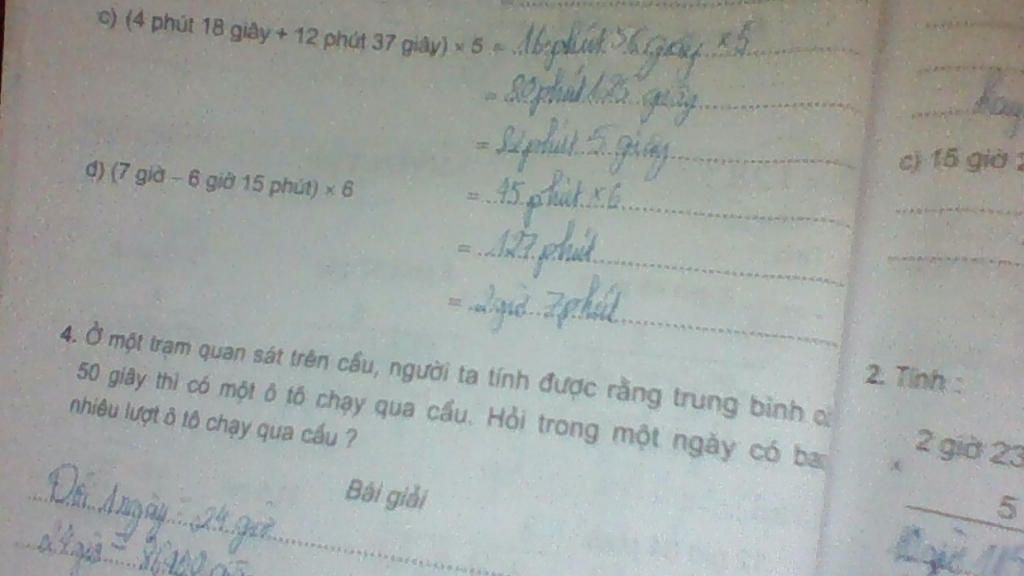 c) (4 phút 18 giây + 12 phút 37 giây) × 5 = 16 phút 56 giây × 5
= 80 phút 125 giây
= 82 phút 5 giây
d) (7 giờ – 6 giờ 15 phút) × 6
= 45 phút × 6
= 127 phút
= 2 giờ 7 phút
4. Ở một trạm quan sát trên cầu, người ta tính được rằng trung bình cứ
50 giây thì có một ô tô chạy qua cầu. Hỏi trong một ngày có bao
nhiêu lượt ô tô chạy qua cầu ?
Bài giải
Đổi 1 ngày = 24 giờ
24 giờ =
c) 15 giờ 2
2. Tính :
2 giờ 23
×
5
giờ 115